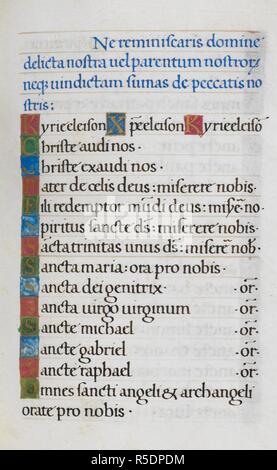 Ne reminiscaris domine
delicta nostra uel parentum nostror
neq uindictam sumas de peccatis no
stris:
Kyrieleison Xpeeleison Kyrieleisō
Christe audi nos ·
Christe exaudi nos ·
Pater de celis deus: miserere nobis ·
Fili redemptor mūdi deus: misr̄e no ·
Spiritus sancte ds̄: miserere nobis ·
Sācta trinitas unus ds̄: miserē nob ·
Sancta maria: ora pro nobis ·
Sancta dei genitrix · or̄ ·
Sancta uirgo uirginum · or̄ ·
Sancte michael · or̄ ·
Sancte gabriel · or̄ ·
Sancte raphael · or̄ ·
Omnes sancti angeli & archangeli
orate pro nobis ·
alamy
Image ID: R5DPDM
www.alamy.com